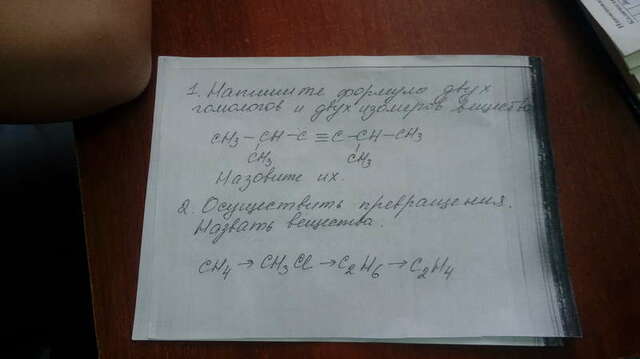 1. Напишите формулы двух
гомологов и двух изомеров вещества
CH3 – CH – C ≡ C – CH – CH3
CH3 CH3
Назовите их.
2. Осуществить превращения.
Назвать вещества.
CH4 → CH3Cl → C2H6 → C2H4